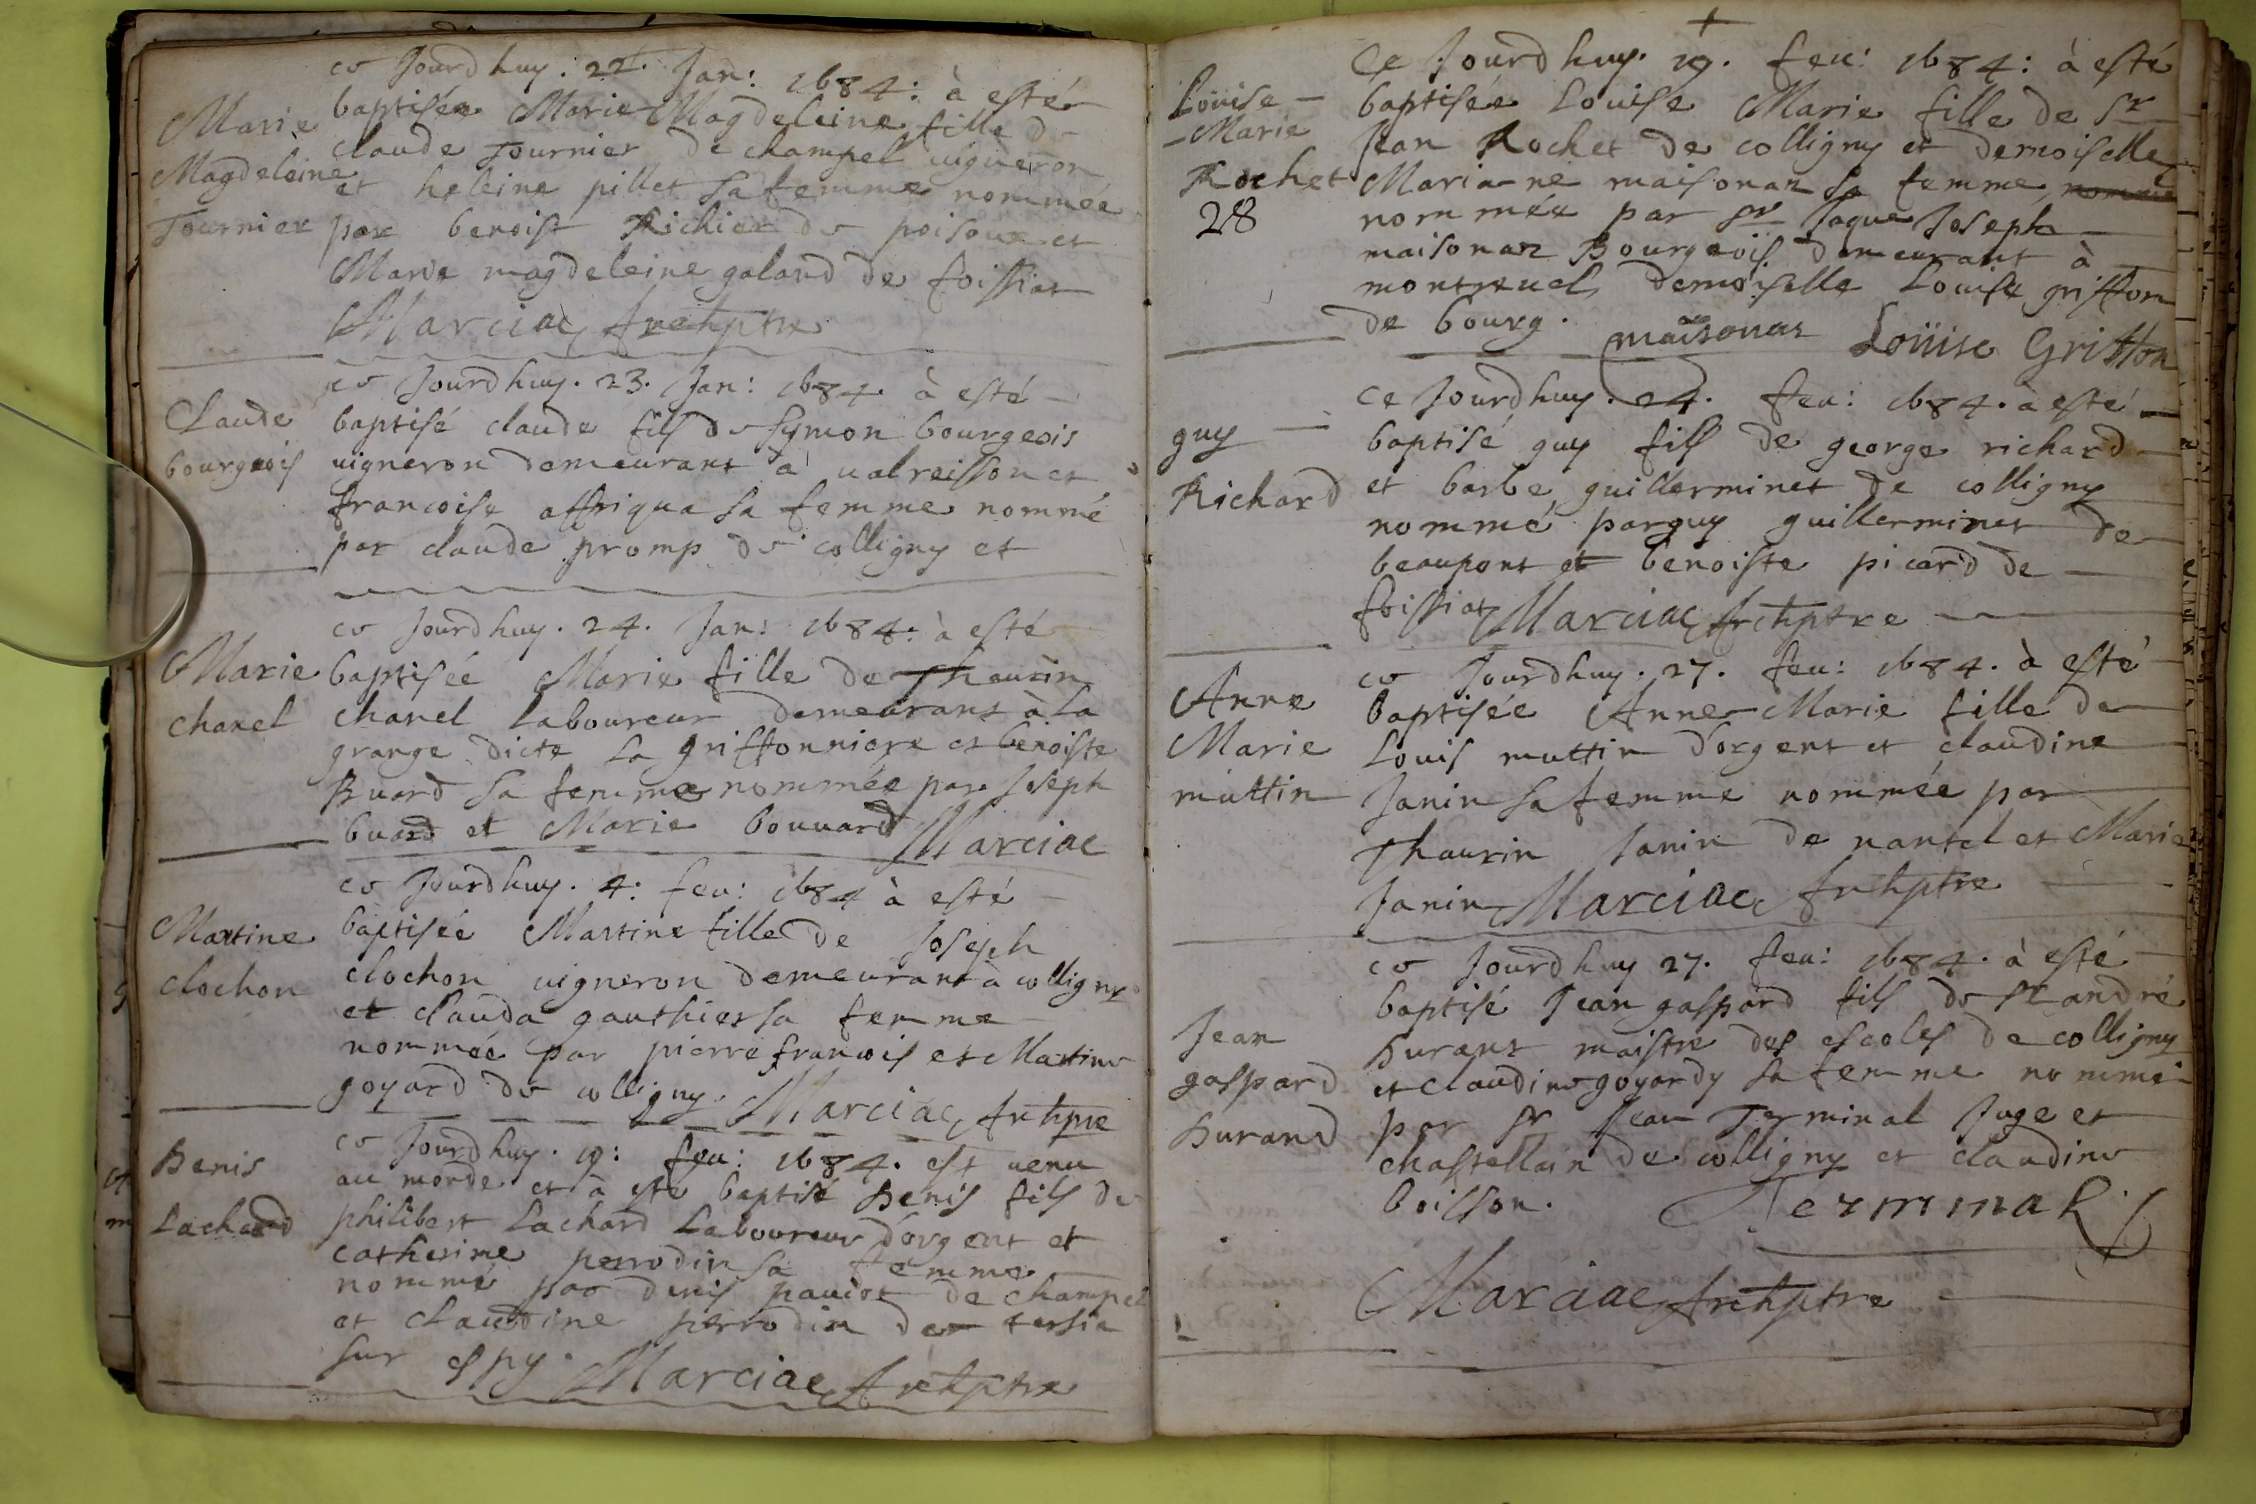 ce Jourdhuy. 22. Jan: 1684: à esté
Marie
baptisée Marie Magdeleine fille de
Magdeleine
claude Tournier de champel uigneron
et heleine pillet sa femme nommée
Tournier
par benoist Richier de poisoux et
Marie magdeleine galand de foissiat
Marciac Archptre
ce Jourdhuy. 23. Jan: 1684. à esté
Claude
baptisé claude fils de Symon bourgeois
bourgeois
uigneron demeurant a ualreisson et
francoise affriqua sa femme nommé
par claude promp de colligny et
ce Jourdhuy. 24. Jan: 1684: à esté
Marie
baptisée Marie fille de Thaurin
chanel
chanel laboureur demeurant à la
grange dicte la griffonniere et benoiste
Buard sa femme nommée par Joseph
buard et Marie bouuard Marciac
ce Jourdhuy. 4. feu: 1684 à esté
Martine
baptisée Martine fille de Joseph
clochon
clochon uigneron demeurant à colligny
et clauda gauthier sa femme
nommée par pierre francois et Martine
goyard de colligny. Marciac Archptre
ce Jourdhuy. 19: feu: 1684. est uenu
Denis
au monde et à esté baptisé Denis fils de
Lachard
philibert Lachard Laboureur d'orgent et
catherine perrodin sa femme
nommé par denis pauiot de champel
et Claudine perrodin de tersia
sur espy. Marciac Archptre
Ce Jourdhuy. 19. feu: 1684: à esté
Loüise
baptisée Louise Marie fille de Sr
Marie
Jean Rochet de colligny et demoiselle
Rochet
Mariane maisonaz sa femme nommé
28
nommée par sr Jaque Joseph
maisonaz Bourgeois demeurant à
montreuel demoiselle Louise griffon
de bourg. maisonas Loüise Griffon
ce Jourdhuy. 24. feu: 1684. à esté
guy
baptisé guy fils de george richard
Richard
et barbe guilleminet de colligny
nommé par guy guilleminet de
beaupont et benoiste picard de
foissiat Marciac Archptre
ce Jourdhuy. 27. feu: 1684. à esté
Anne
baptisée Anne Marie fille de
Marie
Louis muttin d'orgent et claudine
muttin
Janin sa femme nommée par
Thaurin Janin de nantel et Marie
Janin Marciac Archptre
ce Jourdhuy 27. feu: 1684. à esté
Jean
baptisé Jean gaspard fils de Sr andré
gaspard
Durant maistre des escoles de colligny
et claudine goyardy sa femme nommé
Durand
par sr Jean Terminal Juge et
chastellain de colligny et claudine
boisson. Terminal
Marciac Archptre